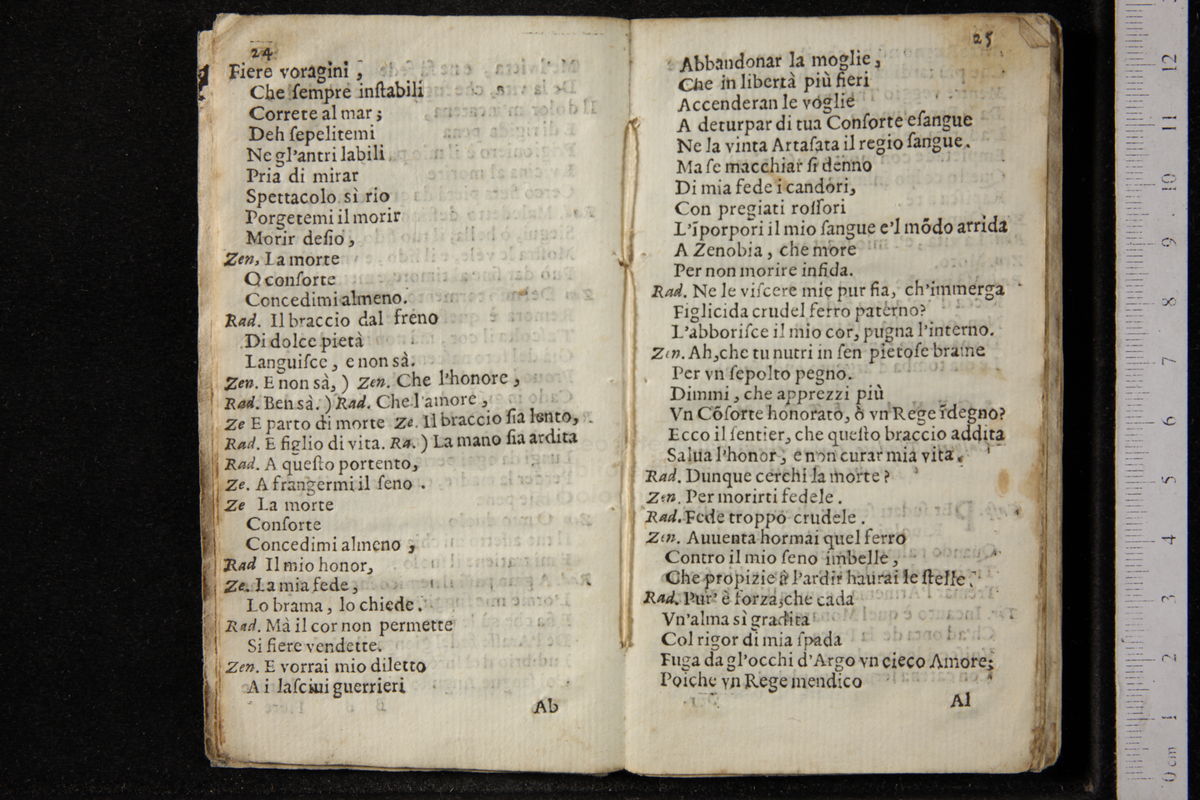 24
Fiere voragini,
Che ſempre inſtabili
Correte al mar;
Deh ſepelitemi
Ne gl'antri labili
Pria di mirar
Spettacolo sì rio
Porgetemi il morir
Morir deſio,
Zen, La morte
O conſorte
Concedimi almeno.
Rad. Il braccio dal freno
Di dolce pietà
Languiſce, e non sà.
Zen. E non sà, ) Zen. Che l'honore,
Rad. Ben sà. ) Rad. Che l'amore,
Ze E parto di morte Ze. Il braccio ſia lento,
Rad. E figlio di vita. Ra. ) La mano ſia ardita
Rad. A queſto portento,
Ze. A frangermi il ſeno.
Ze La morte
Conſorte
Concedimi almeno,
Rad Il mio honor,
Ze. La mia fede,
Lo brama, lo chiede.
Rad. Mà il cor non permette
Si fiere vendette.
Zen. E vorrai mio diletto
A i laſciui guerrieri
Ab
25
Abbandonar la moglie,
Che in libertà più fieri
Accenderan le voglie
A deturpar di tua Conſorte eſangue
Ne la vinta Artaſata il regio ſangue.
Ma ſe macchiar ſi denno
Di mia fede i candóri,
Con pregiati roſſori
L'īporpori il mio ſangue e'l mōdo arrida
A Zenobia, che more
Per non morire infida.
Rad. Ne le viſcere mie pur fia, ch'immerga
Figlicida crudel ferro paterno?
L'abboriſce il mio cor, pugna l'interno.
Zen. Ah, che tu nutri in ſen pietoſe brame
Per vn ſepolto pegno.
Dimmi, che apprezzi più
Vn Cōſorte honorato, ò vn Rege īdegno?
Ecco il ſentier, che queſto braccio addita
Salua l'honor, e non curar mia vita.
Rad. Dunque cerchi la morte?
Zen. Per morirti fedele.
Rad. Fede troppo crudele.
Zen. Auuenta hormai quel ferro
Contro il mio ſeno imbelle,
Che propizie à l'ardir haurai le ſtelle.
Rad. Pur' è forza, che cada
Vn'alma sì gradita
Col rigor di mia ſpada
Fuga da gl'occhi d'Argo vn cieco Amore;
Poiche vn Rege mendico
Al
0 cm 1 2 3 4 5 6 7 8 9 10 11 12